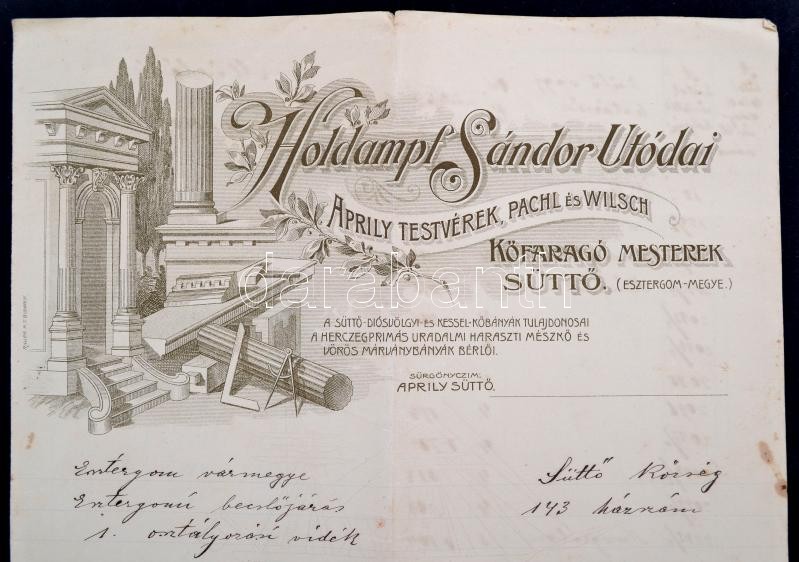 Holdampf Sándor Utódai
APRILY TESTVÉREK, PACHL ÉS WILSCH
KŐFARAGÓ MESTEREK
SÜTTŐ. (ESZTERGOM-MEGYE.)
A SÜTTŐ-DIÓSVÖLGYI- ÉS KESSEL-KŐBÁNYÁK TULAJDONOSAI
A HERCZEGPRIMÁS URADALMI HARASZTI MÉSZKŐ ÉS
VÖRÖS MÁRVÁNYBÁNYÁK BÉRLŐI.
SÜRGÖNYCZIM:
APRILY SÜTTŐ.
darabanth
Esztergom vármegye
Esztergomi becslőjárás
1. osztályozási vidék
Süttő Község
143 házszám